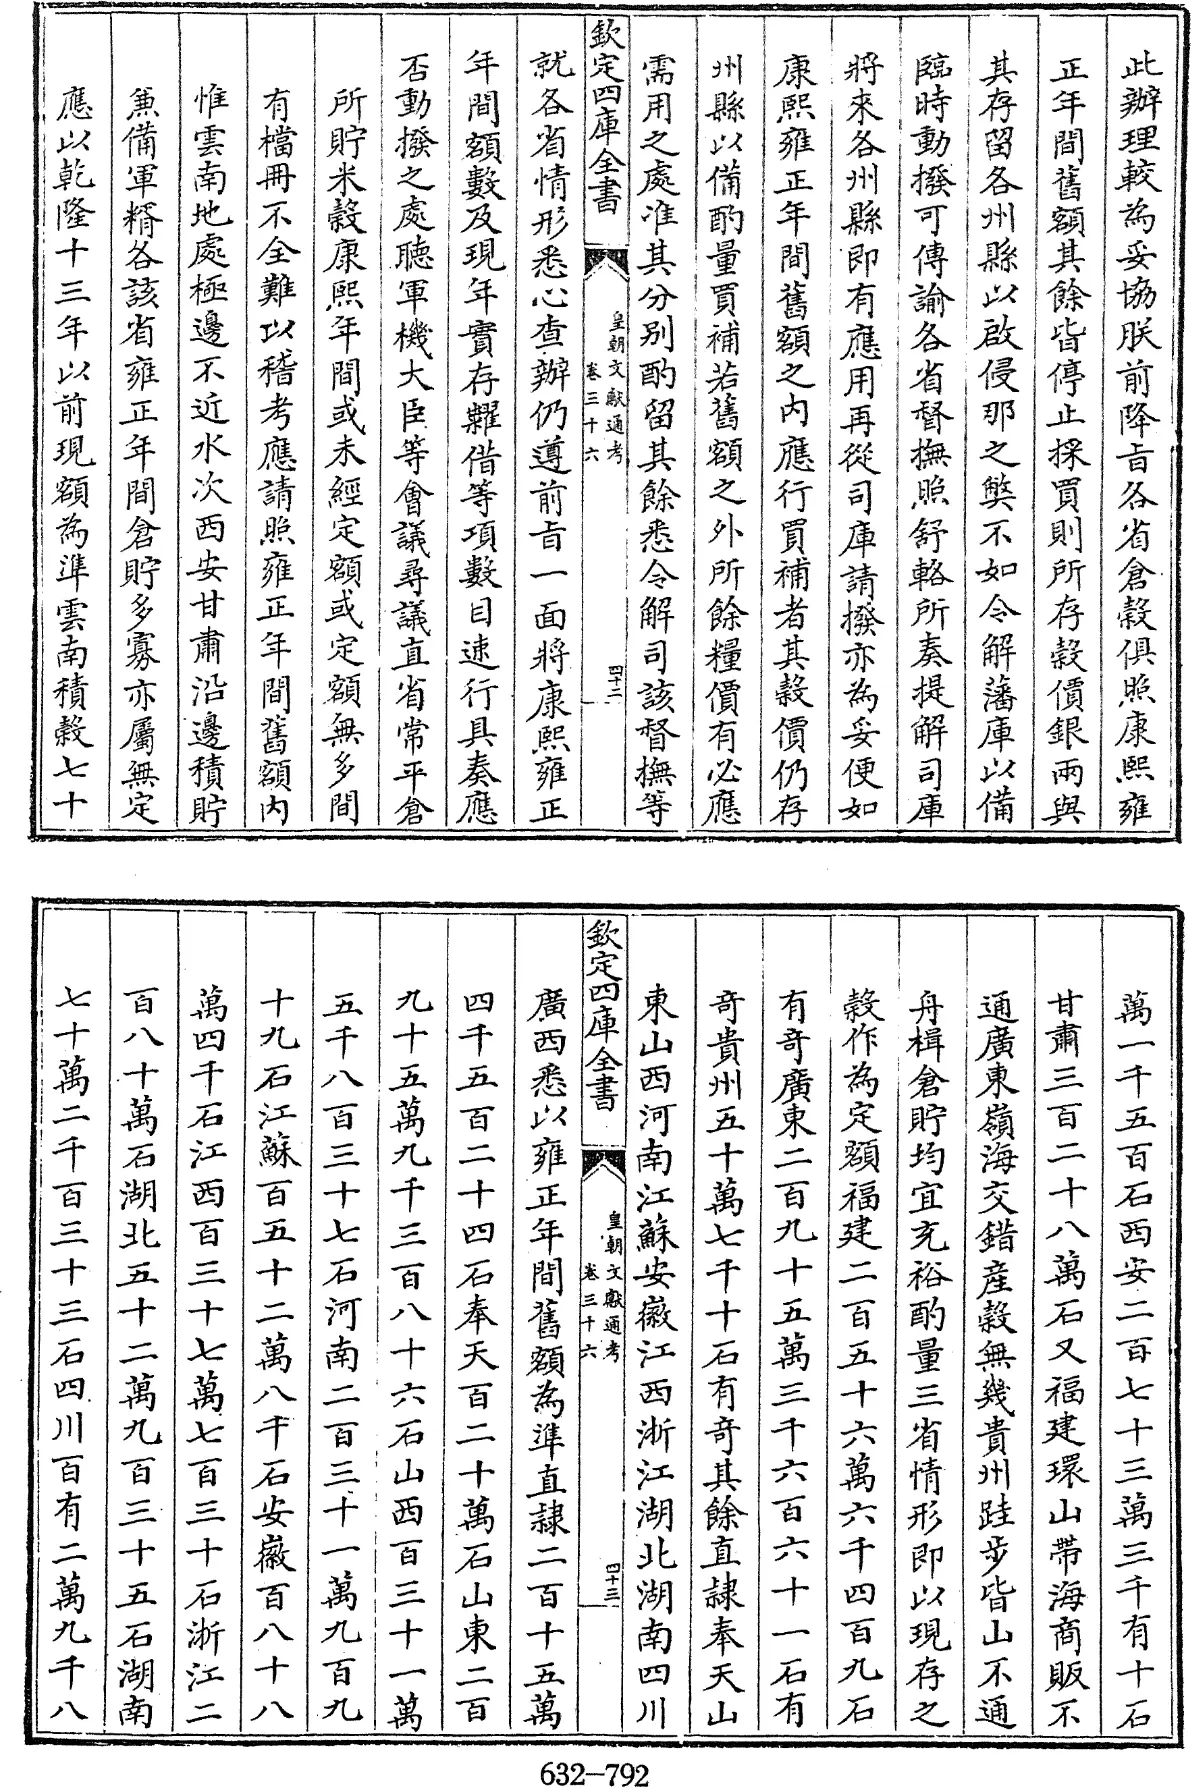 此辦理較為妥協朕前降旨各省倉穀俱照康熙雍
正年間舊額其餘皆停止採買則所存穀價銀兩與
其存留各州縣以啟侵那之弊不如令解藩庫以備
臨時動撥可傳諭各省督撫照舒輅所奏提解司庫
將來各州縣即有應用再從司庫請撥亦為妥便如
康熙雍正年間舊額之內應行買補者其穀價仍存
州縣以備酌量買補若舊額之外所餘糧價有必應
需用之處准其分別酌留其餘悉令解司該督撫等
欽定四庫全書
皇朝文獻通考
卷三十六
四十二
就各省情形悉心查辦仍遵前旨一面將康熙雍正
年間額數及現年實存糶借等項數目速行具奏應
否動撥之處聽軍機大臣等會議尋議直省常平倉
所貯米穀康熙年間或未經定額或定額無多間
有檔冊不全難以稽考應請照雍正年間舊額內
惟雲南地處極邊不近水次西安甘肅沿邊積貯
兼備軍糈各該省雍正年間倉貯多寡亦屬無定
應以乾隆十三年以前現額為準雲南積穀七十
萬一千五百石西安二百七十三萬三千有十石
甘肅三百二十八萬石又福建環山帶海商販不
通廣東嶺海交錯產穀無幾貴州跬步皆山不通
舟楫倉貯均宜充裕酌量三省情形即以現存之
穀作為定額福建二百五十六萬六千四百九石
有奇廣東二百九十五萬三千六百六十一石有
奇貴州五十萬七千十石有奇其餘直隸奉天山
東山西河南江蘇安徽江西浙江湖北湖南四川
欽定四庫全書
皇朝文獻通考
卷三十六
四十三
廣西悉以雍正年間舊額為準直隸二百十五萬
四千五百二十四石奉天百二十萬石山東二百
九十五萬九千三百八十六石山西百三十一萬
五千八百三十七石河南二百三十一萬九百九
十九石江蘇百五十二萬八千石安徽百八十八
萬四千石江西百三十七萬七百三十石浙江二
百八十萬石湖北五十二萬九百三十五石湖南
七十萬二千百三十三石四川百有二萬九千八
632-792